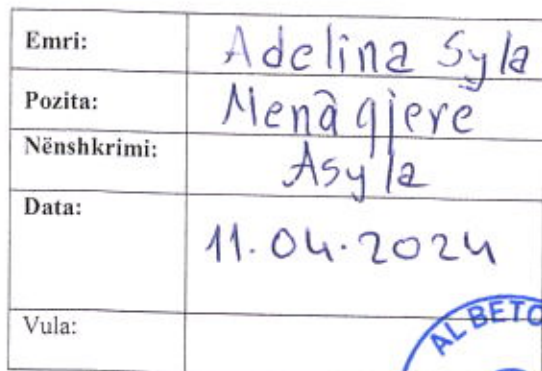 Emri: Adelina Syla
Pozita: Menagjere
Nënshkrimi: Asyla
Data: 11.04.2024
Vula:
AL BETO